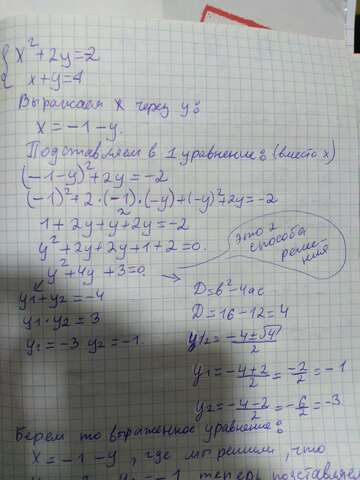 x²+2y=2
x+y=4
Выражаем x через y:
x=-1-y.
Подставляем в 1 уравнение: (вместо x)
(-1-y)²+2y=-2
(-1)²+2·(-1)·(-y)+(-y)²+2y=-2
1+2y+y²+2y=-2
y²+2y+2y+1+2=0.
y²+4y+3=0.
это 2
способа
реше-
ния
y1+y2=-4
y1·y2=3
y1=-3 y2=-1.
D=b²-4ac
D=16-12=4
y1/2=-4±√4/2
y1=-4+2/2=-2/2=-1
y2=-4-2/2=-6/2=-3.
Берем то выраженное уравнение:
x=-1-y, где мы решили, что
y2=-1 теперь подставляем